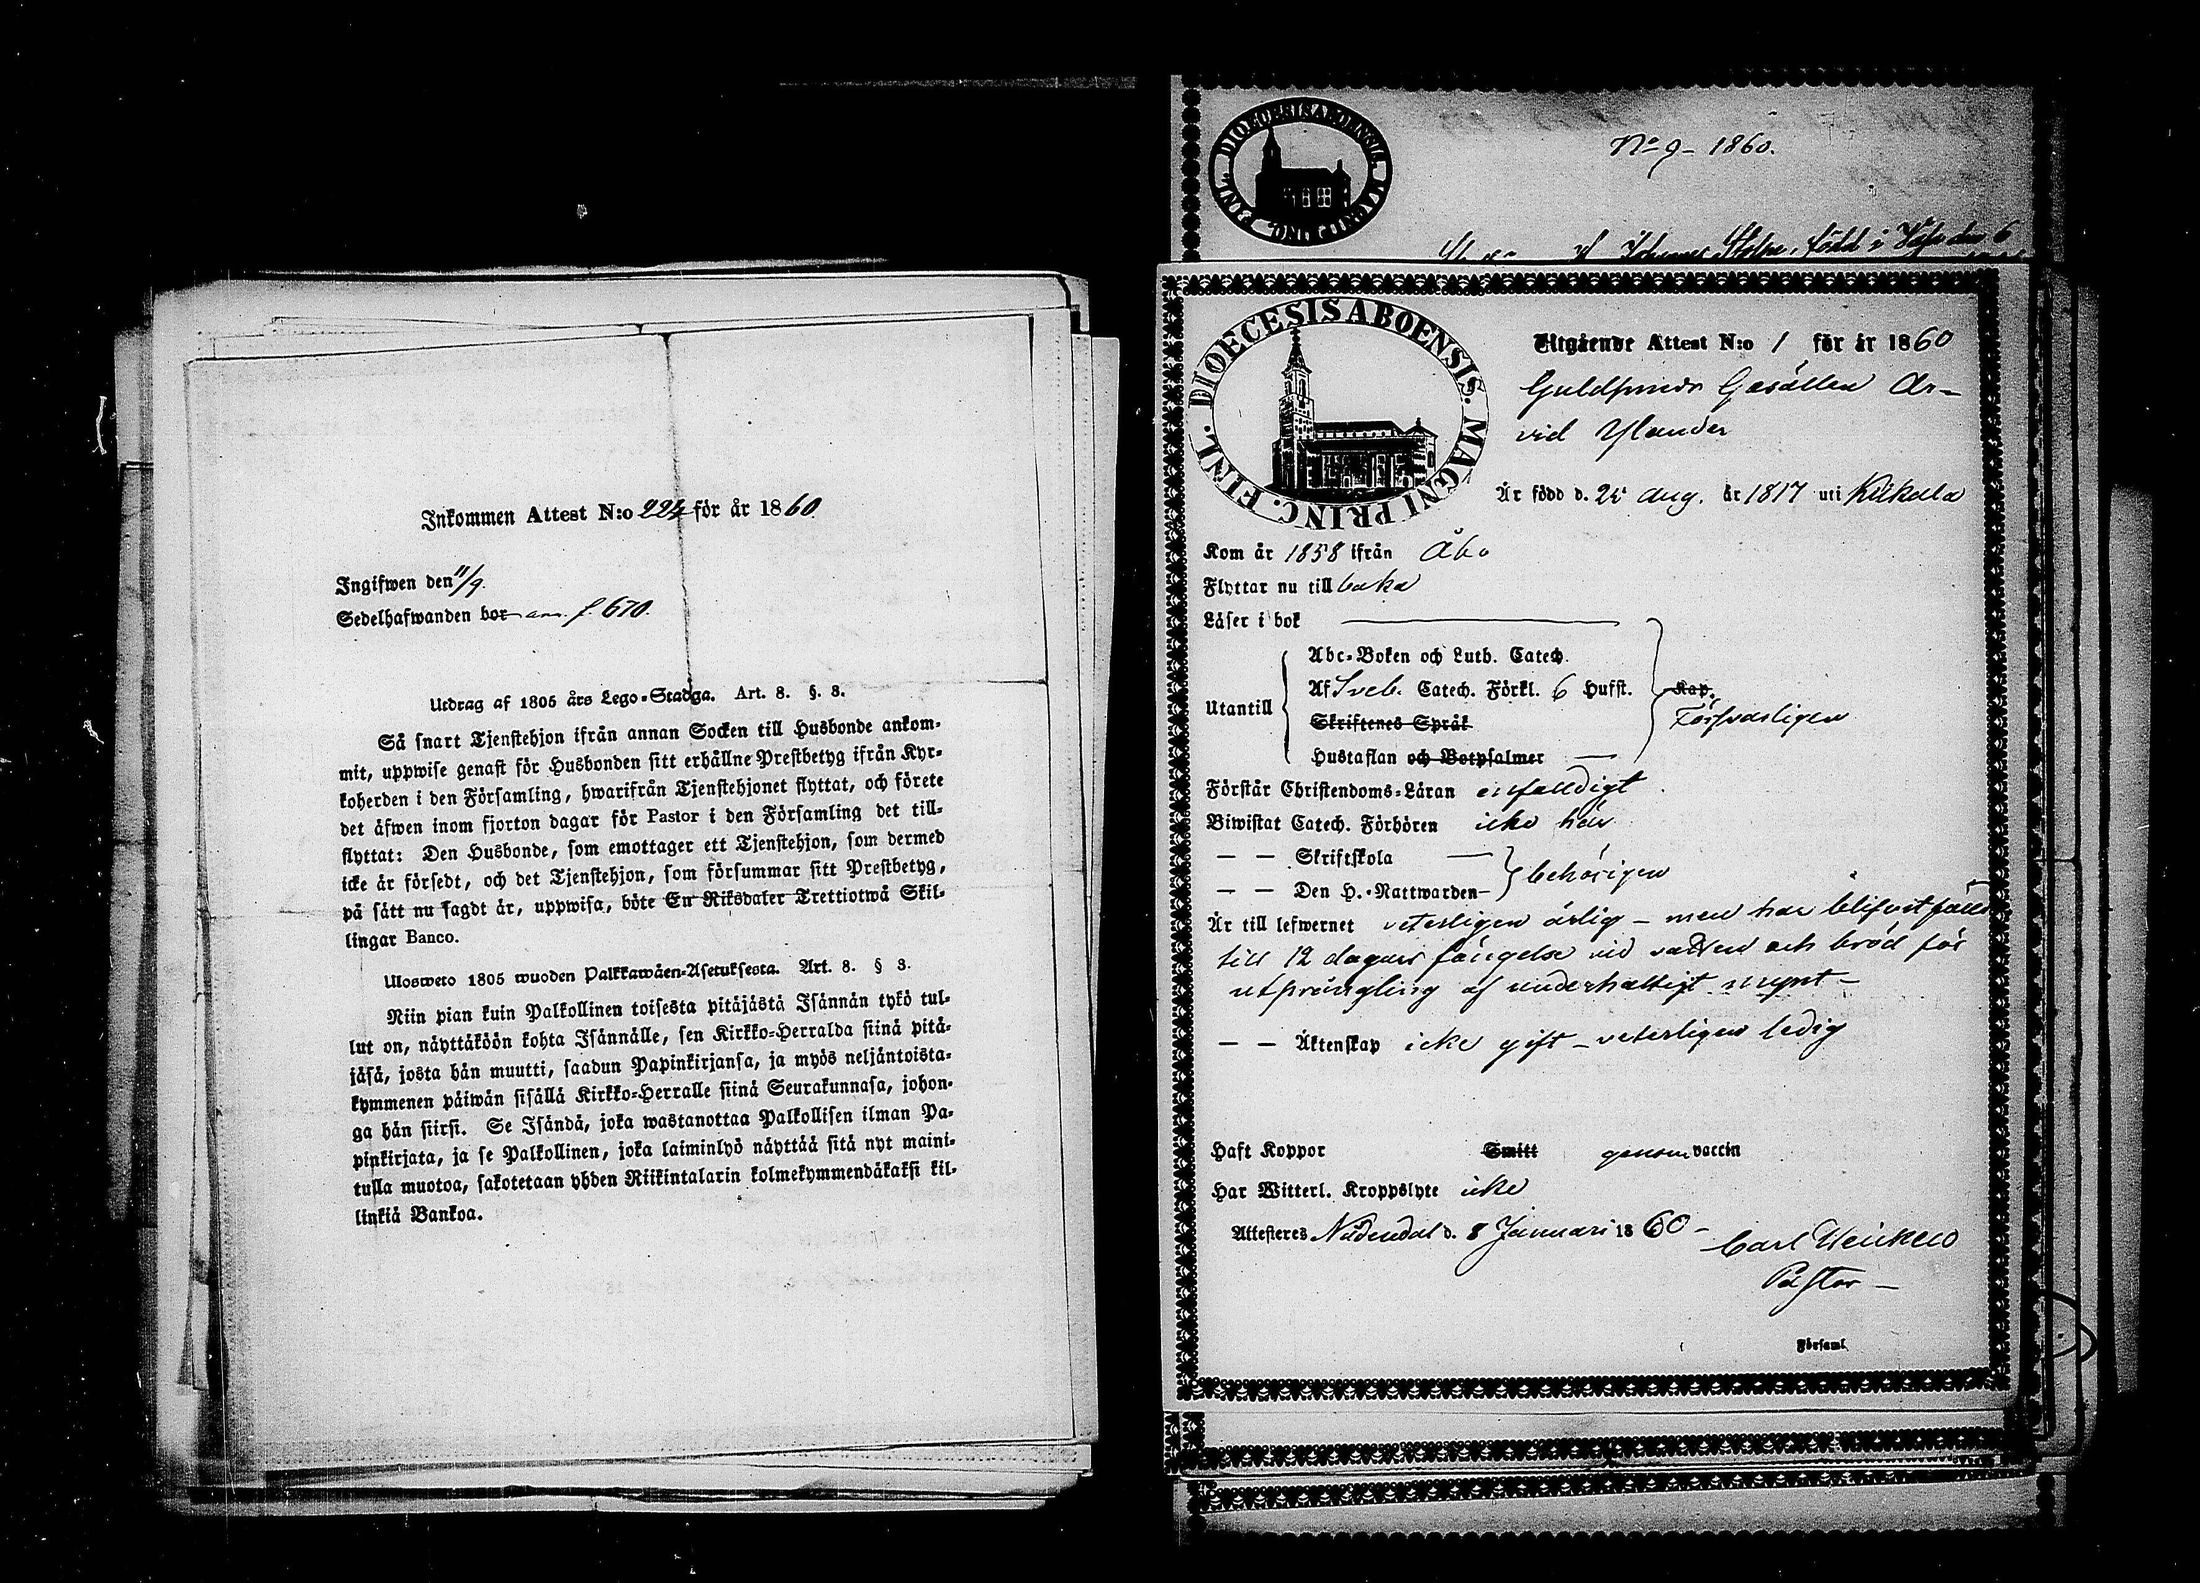 Inkommen Attest N:o 224 för år 1860
Ingifwen den 11/9.
Sedelhafwanden bor ann. f. 670.
Utdrag af 1805 års Lego-Stadga. Art. 8. §. 3.
Så snart Tjenstehjon ifrån annan Socken till Husbonde ankom-
mit, uppwise genast för Husbonden sitt erhållne Prestbetyg ifrån Kyr-
koherden i den Församling, hwarifrån Tjenstehjonet flyttat, och förete
det äfwen inom fjorton dagar för Pastor i den Församling det till-
flyttat: Den Husbonde, som emottager ett Tjenstehjon, som dermed
icke är försedt, och det Tjenstehjon, som försummar sitt Prestbetyg,
på sätt nu sagdt är, uppwisa, böte En Riksdaler Trettiotwå Skil-
lingar Banco.
Ulosweto 1805 wuoden Palkkawäen-Asetuksesta. Art. 8. § 3.
Niin pian kuin Palkollinen toisesta pitäjästä Isännän tykö tul-
lut on, näyttäköön kohta Isännälle, sen Kirkko-Herralda siinä pitä-
jäsä, josta hän muutti, saadun Papinkirjansa, ja myös neljäntoista-
kymmenen päiwän sisällä Kirkko-Herralle siinä Seurakunnasa, johon-
ga hän siirsi. Se Isändä, joka wastanottaa Palkollisen ilman Pa-
pinkirjata, ja se Palkollinen, joka laiminlyö näyttää sitä nyt maini-
tulla muotoa, sakotetaan yhden Riikintalarin kolmekymmendäkaksi kil-
linkiä Bankoa.
DIOECESIS ABOENSIS. MAGNI PRINC. FINL.
No 9 - 1860.
Johannes född i
DIOECESIS ABOENSIS. MAGNI PRINC. FINL.
Utgående Attest N:o 1 för år 1860
Guldsmeds Gesällen Ar-
vid Ylander
Är född d. 25 Aug. år 1817 uti Kiikala
Kom år 1858 ifrån Åbo
Flyttar nu till baka
Läser i bok
Utantill
Abc-Boken och Luth. Catech.
Af Sveb. Catech. Förkl. 6 Hufst.
Skriftenes Språk
Hustaflan och Botpsalmer
Kap.
Försvarligen
Förstår Christendoms-Läran enfalldigt
Biwistat Catech. Förhören icke här
— — Skriftskola
— — Den H. Nattwarden
behörigen
Är till lefwernet veterligen ärlig - men har blifvit fälld
till 12 dagars fängelse vid vatten och bröd för
utprångling af underhaltigt mynt -
— — Äktenskap icke gift - veterligen ledig
Haft Koppor Smitt genom vaccin
Har Witterl. Kroppslyte icke
Attesteres Nådendal d. 8 Januari 1860 -
Carl Heinken
Pastor -
Församl.